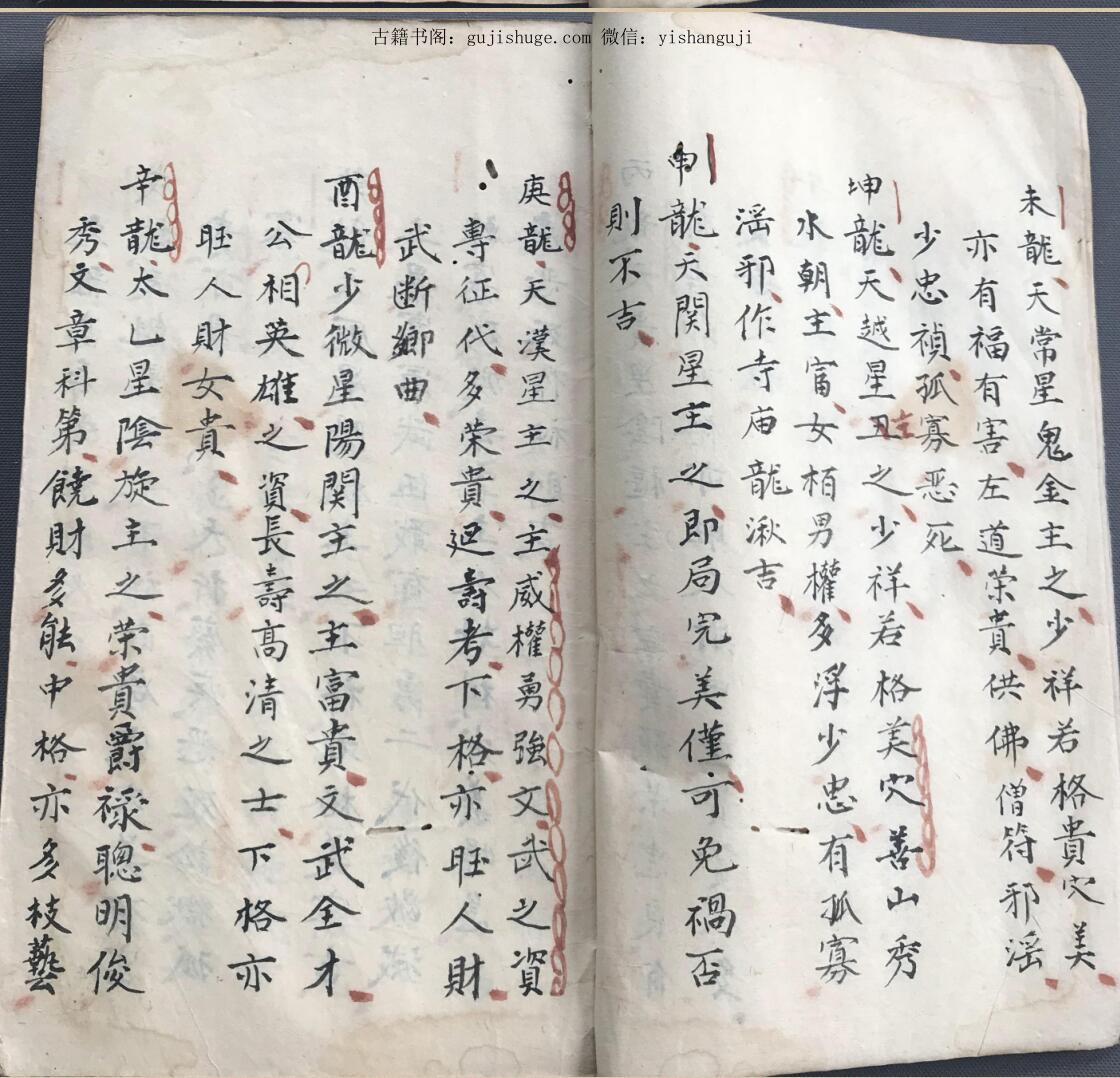 古籍书阁：gujishuge.com 微信：yishanguji
未龍天常星鬼金主之少祥若格貴穴美
亦有福有害左道荣貴供佛僧符邪滛
少忠禎孤寡恶死
坤龍天越星丑主之少祥若格美穴善山秀
水朝主富女栢男權多浮少忠有孤寡
滛邪作寺庙龍湫吉
申龍天関星主之即局完美僅可免禍否
則不吉
庚龍天漢星主之主威權勇強文武之資
專征代多荣貴廻壽考下格亦旺人財
武断鄉曲
酉龍少微星陽関主之主富貴文武全才
公相英雄之資長壽高清之士下格亦
旺人財女貴
辛龍太乚星陰旋主之荣貴爵禄聰明俊
秀文章科第饒財多能中格亦多枝藝